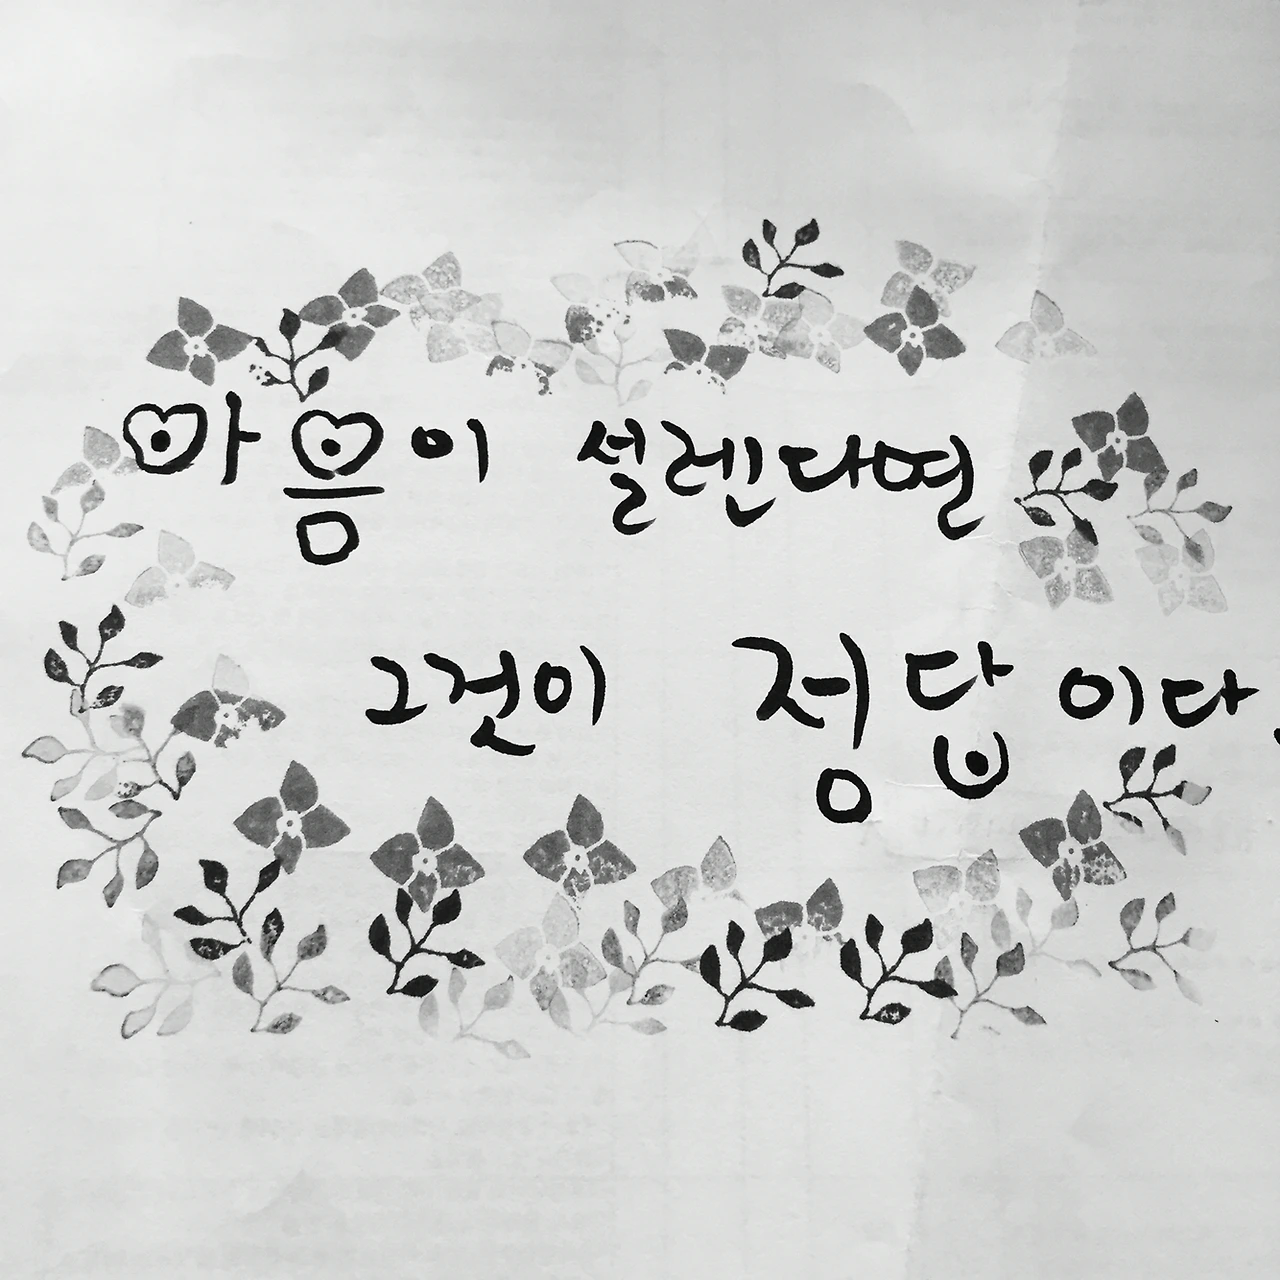 마음이 설렌다면
그것이 정답이다.